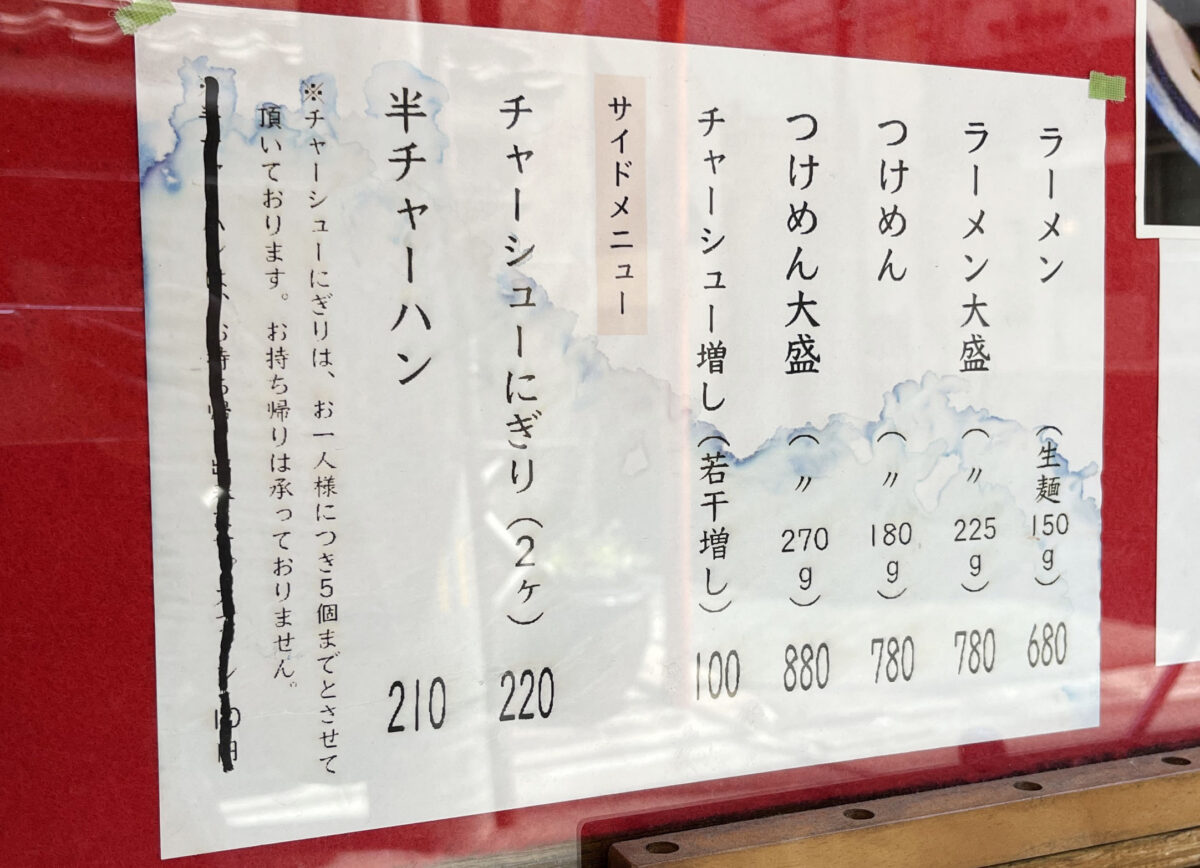 ラーメン（生麺150g）680
ラーメン大盛（〃225g）780
つけめん（〃180g）780
つけめん大盛（〃270g）880
チャーシュー増し（若干増し）100
サイドメニュー
チャーシューにぎり（2ヶ）220
半チャーハン 210
※チャーシューにぎりは、お一人様につき5個までとさせて
頂いております。お持ち帰りは承っておりません。